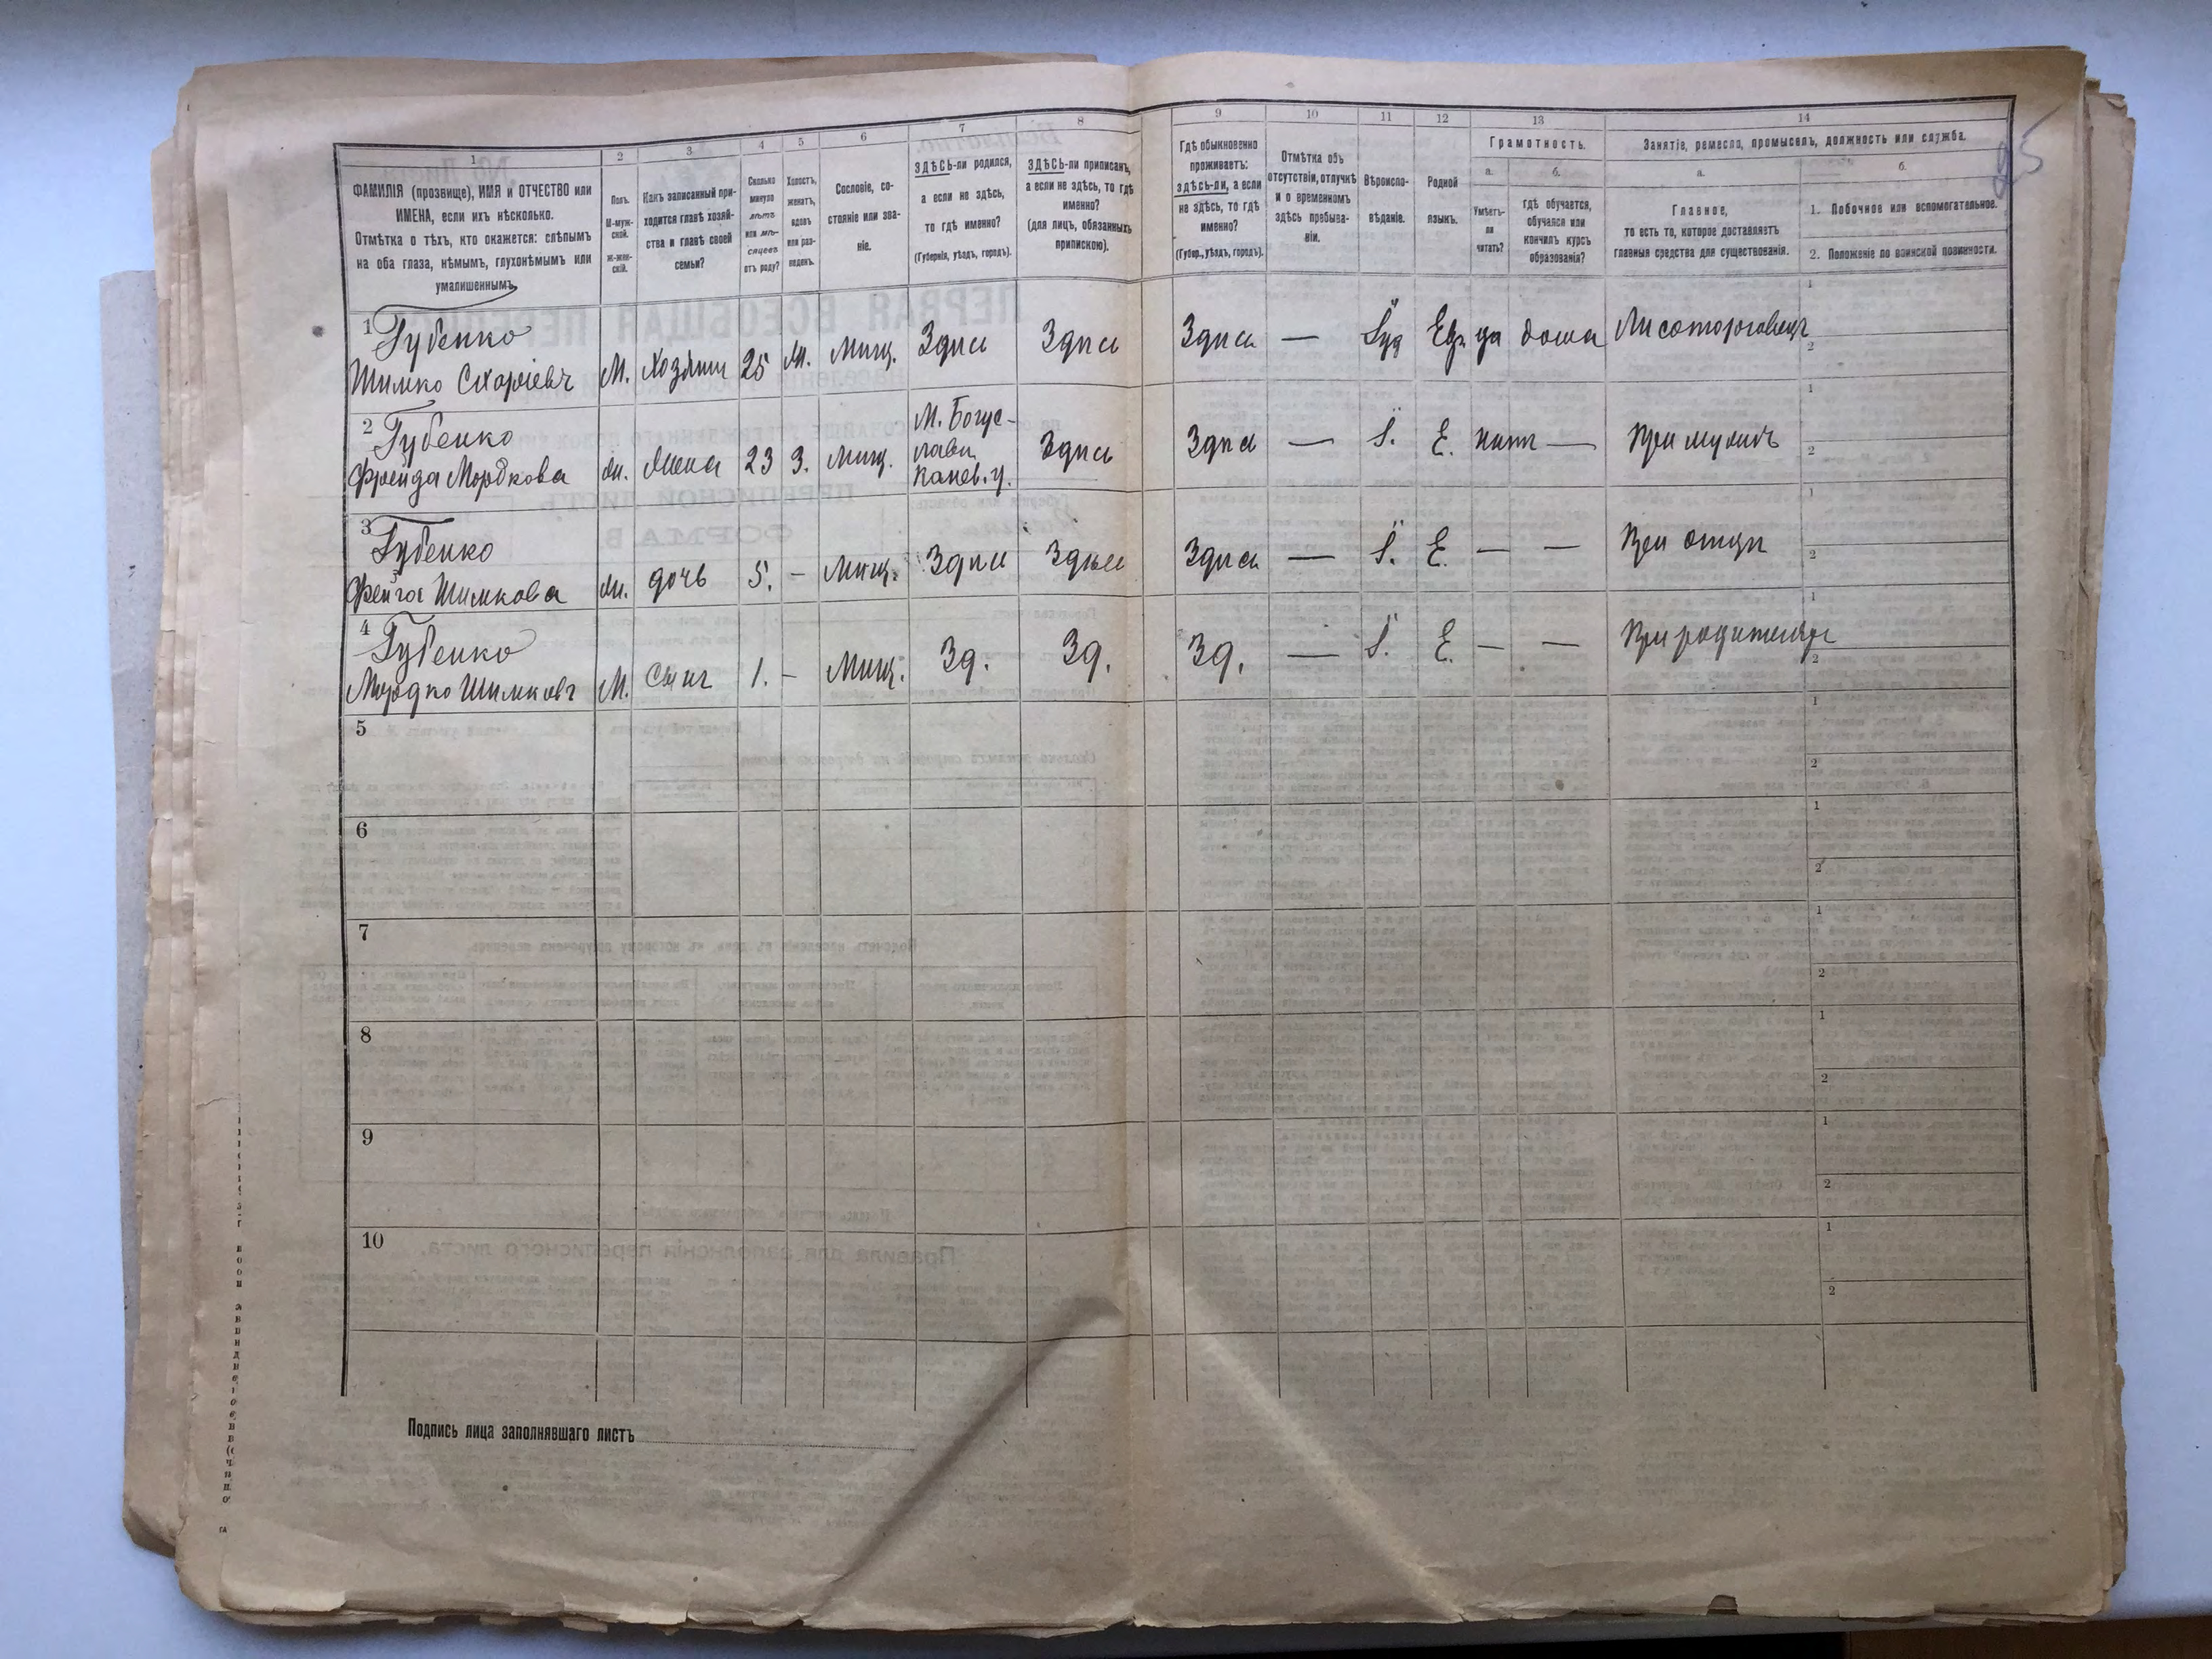 1 2 3 4 5 6 7 8 9 10 11 12 13 14
ФАМИЛІЯ (прозвище), ИМЯ и ОТЧЕСТВО или
ИМЕНА, если ихъ нѣсколько.
Отмѣтка о тѣхъ, кто окажется: слѣпымъ
на оба глаза, нѣмымъ, глухонѣмымъ или
умалишеннымъ.
Полъ.
М-муж-
ской.
Ж-жен-
скій.
Какъ записанный при-
ходится главѣ хозяй-
ства и главѣ своей
семьи?
Сколько
минуло
лѣтъ
или мѣ-
сяцевъ
отъ роду?
Холостъ,
женатъ,
вдовъ
или раз-
веденъ.
Сословіе, со-
стояніе или зва-
ніе.
ЗДѢСЬ-ли родился,
а если не здѣсь,
то гдѣ именно?
(Губернія, уѣздъ, городъ).
ЗДѢСЬ-ли приписанъ,
а если не здѣсь, то гдѣ
именно?
(для лицъ, обязанныхъ
припиской).
Гдѣ обыкновенно
проживаетъ:
здѣсь-ли, а если
не здѣсь, то гдѣ
именно?
(Губер., уѣздъ, городъ).
Отмѣтка объ
отсутствіи, отлучкѣ
и о временномъ
здѣсь пребыва-
ніи.
Вѣроиспо-
вѣданіе.
Родной
языкъ.
Грамотность.
а.
Умѣетъ-
ли
читать?
б.
гдѣ обучается,
обучался или
кончилъ курсъ
образованія?
Занятіе, ремесло, промыселъ, должность или служба.
а.
Главное,
то есть то, которое доставляетъ
главныя средства для существованія.
б.
1. Побочное или вспомогательное.
2. Положеніе по воинской повинности.
1 Губенко
Шимко Схаріевъ М. Хозяин 25 М. Мищ. Здѣсь Здѣсь Здѣсь — Іуд Евр. да дома Лисоторговецъ
2 Губенко
Фрейда Мордкова Ж. Жена 23 З. Мищ.
М. Богус-
лавъ
Канев. у.
Здѣсь Здѣсь — І. Е. нит — При мужѣ
3 Губенко
Фейга Шимкова Ж. дочь 5. — Мищ. Здѣсь Здѣсь Здѣсь — І. Е. — — При отцѣ
4 Губенко
Мордко Шимковъ М. Сын 1. — Мищ. Зд. Зд. Зд. — І. Е. — —
5
6
7
8
9
10
Подпись лица заполнявшаго листъ